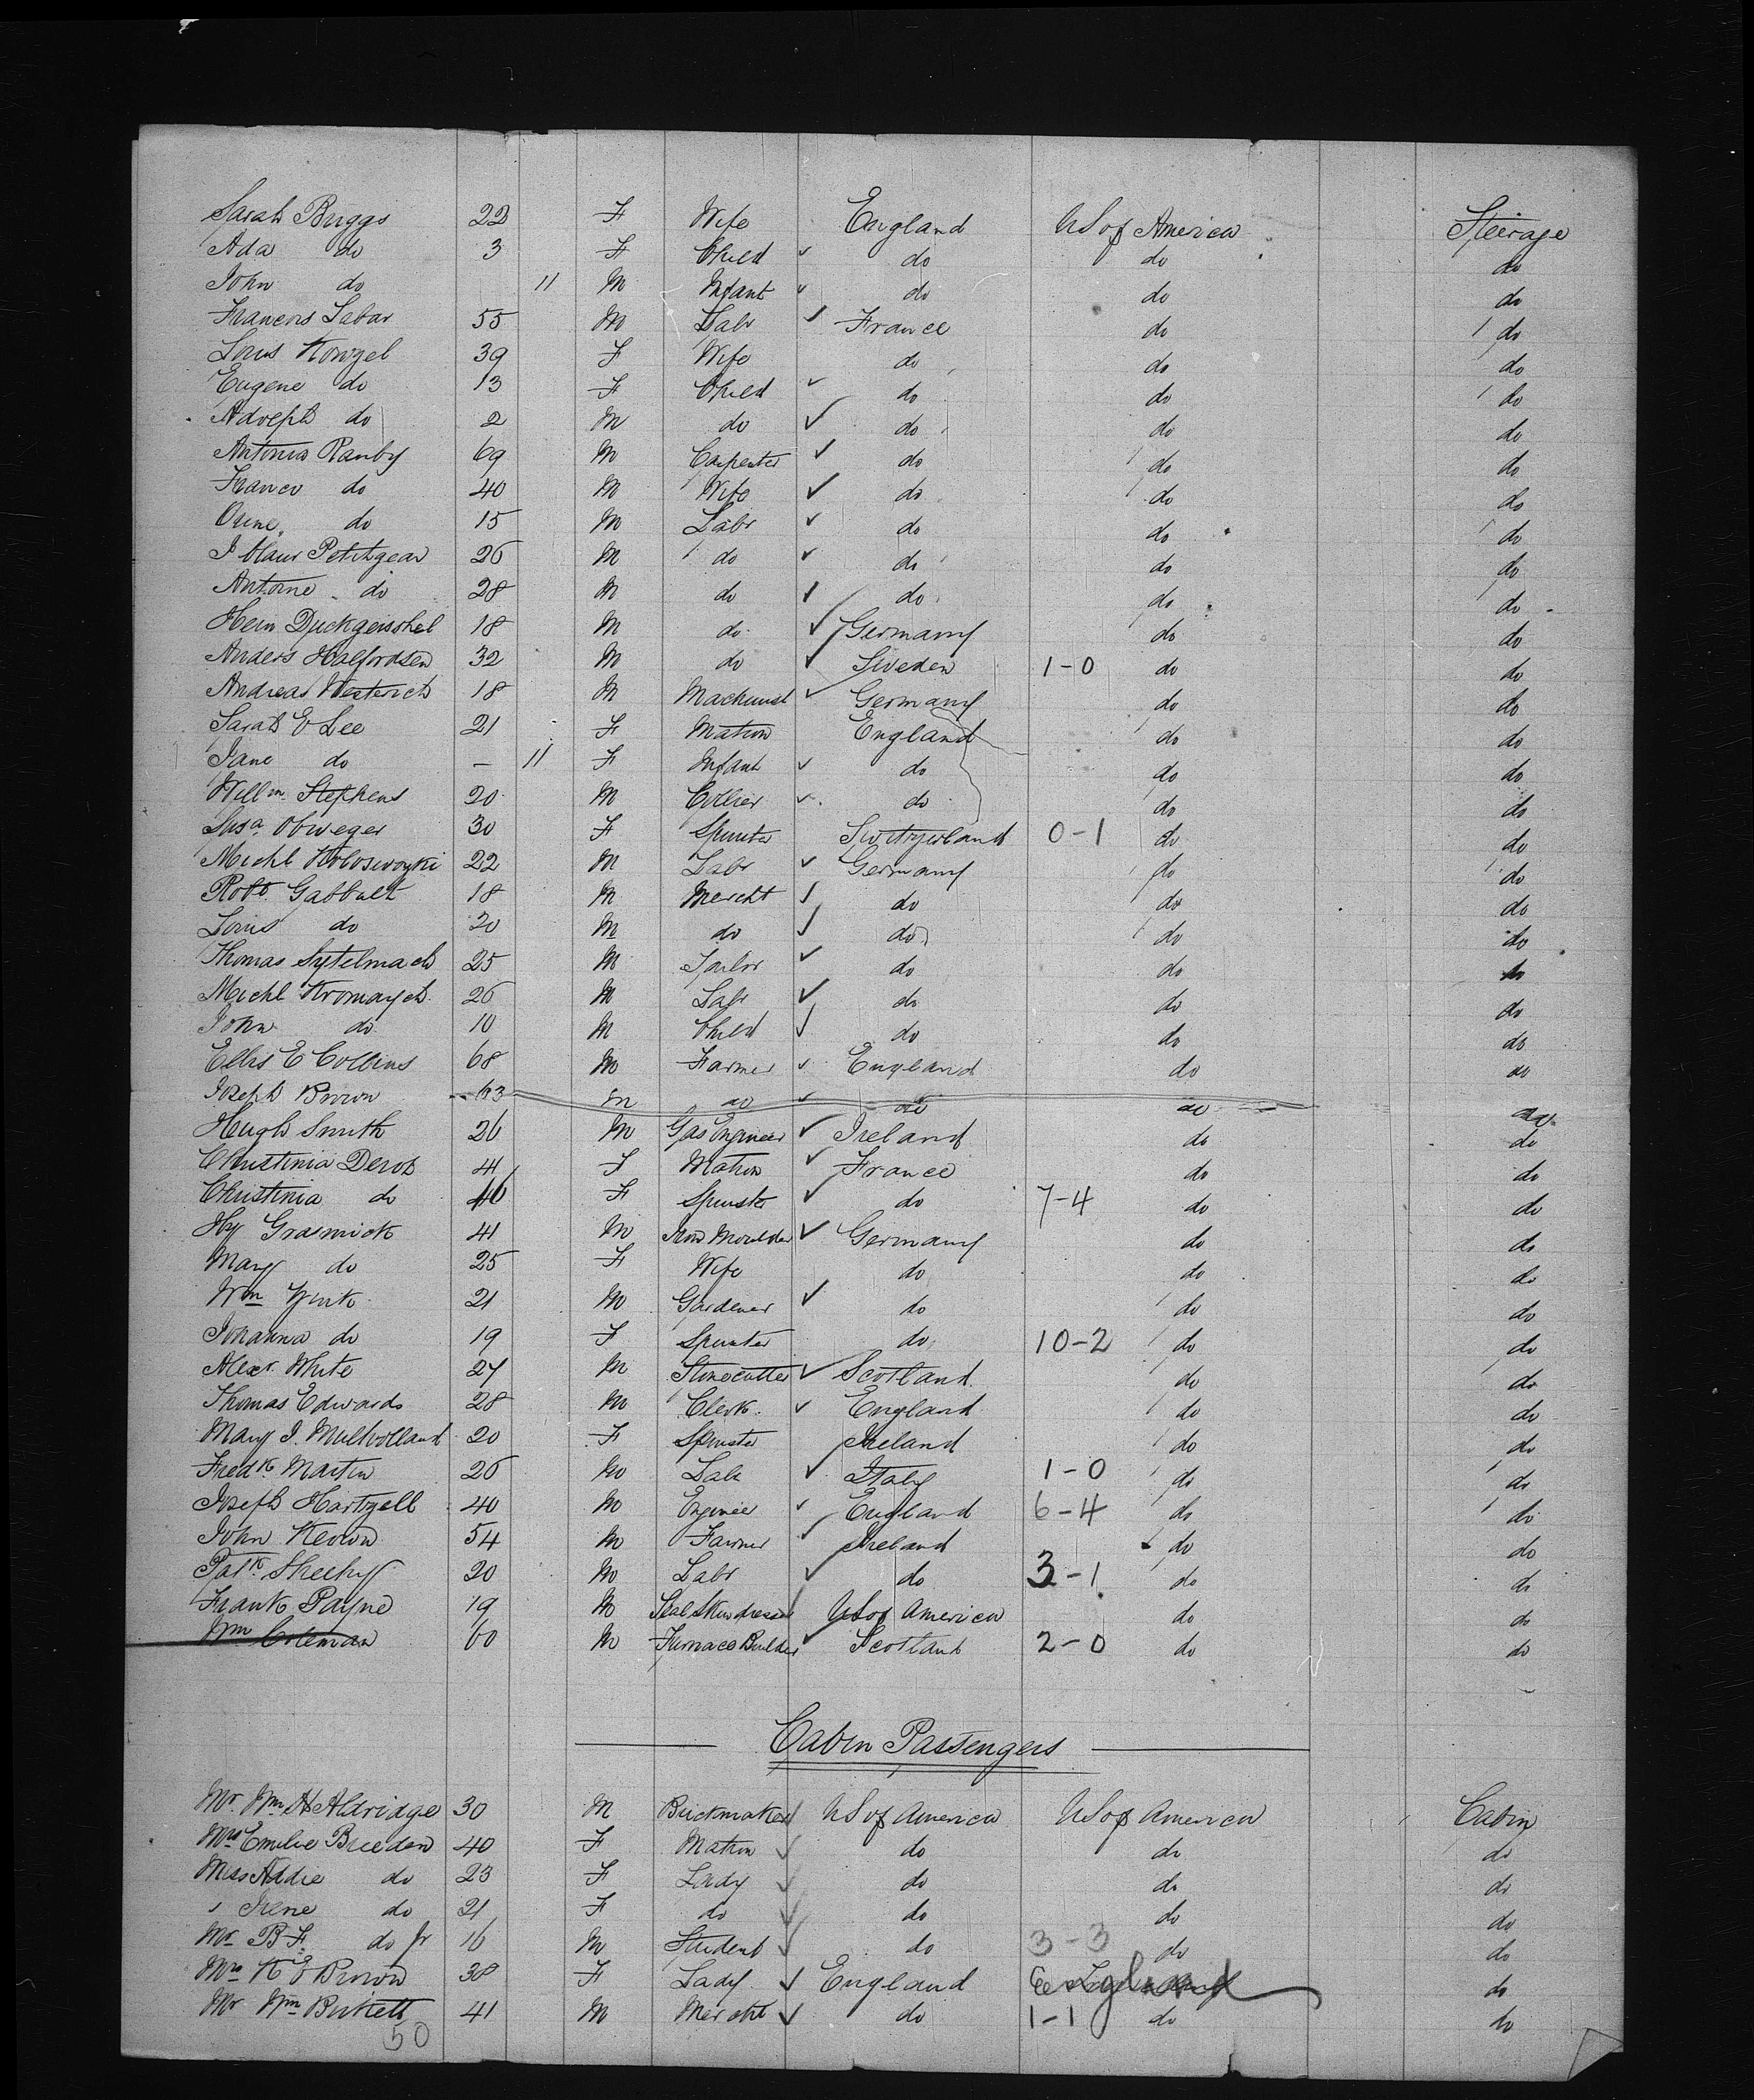 Sarah Briggs 22 F Wife England US of America Steerage
Ada do 3 F Child do do do
John do 11 M Infant do do do
Francois Labar 55 M Labr France do do
Louis Kongel 39 F Wife do do do
Eugene do 13 F Child do do do
Adolph do 2 M do do do do
Antonia Ranby 69 M Carpenter do do do
do 40 M Wife do do do
do 15 M Labr do do do
Petitgear 26 M do do do do
Antoine do 28 M do do do do
Hern 18 M do Germany do do
Anders Halfordsen 32 M do Sweden 1-0 do do
Andreas Westerich 18 M Machinist Germany do do
Sarah E Lee 21 F Matron England do do
Jane do — 11 F Infant do do do
Willm Stephens 20 M Collier do do do
Susa Obweger 30 F Spinster Switzerland 0-1 do do
Michl 22 M Labr Germany do do
Robt Gabbalt 18 M Mercht do do do
Louis do 20 M do do do do
Thomas Sytelmach 25 M Tailor do do do
Michl Kromaych 26 M Labr do do do
John do 10 M Child do do do
Ellis E Collins 68 M Farmer England do do
Joseph Brown 63 M do do do do
Hugh Smith 26 M Gas Engineer Ireland do do
Christinia Derot 41 F Matron France do do
Christinia do 16 F Spinster do 7-4 do do
Hy Grasmick 41 M Iron Moulder Germany do do
Mary do 25 F Wife do do do
Wm 21 M Gardener do do do
Johanna do 19 F Spinster do 10-2 do do
Alexr White 27 M Stonecutter Scotland do do
Thomas Edwards 28 M Clerk England do do
Mary J. Mulholland 20 F Spinster Ireland do do
Fredk Martin 26 M Labr Italy 1-0 do do
Joseph Hartzell 40 M Engineer England 6-4 do do
John Keown 54 M Farmer Ireland do do
Patk Sheehy 20 M Labr do 3-1 do do
Frank Payne 19 M Seal Skin dresser US of America do do
Wm Coleman 60 M Furnace Builder Scotland 2-0 do do
Cabin Passengers
Mr. Wm H Aldridge 30 M Brickmaker US of America US of America Cabin
Mrs Emilie Breeden 40 F Matron do do do
Miss Addie do 23 F Lady do do do
" Irene do 21 F do do do do
Mr B F. do Jr 16 M Student do 3-3 do do
Mrs K E Brown 38 F Lady England England do
Mr Wm Birkett 41 M Mercht do 1-1 do do
50